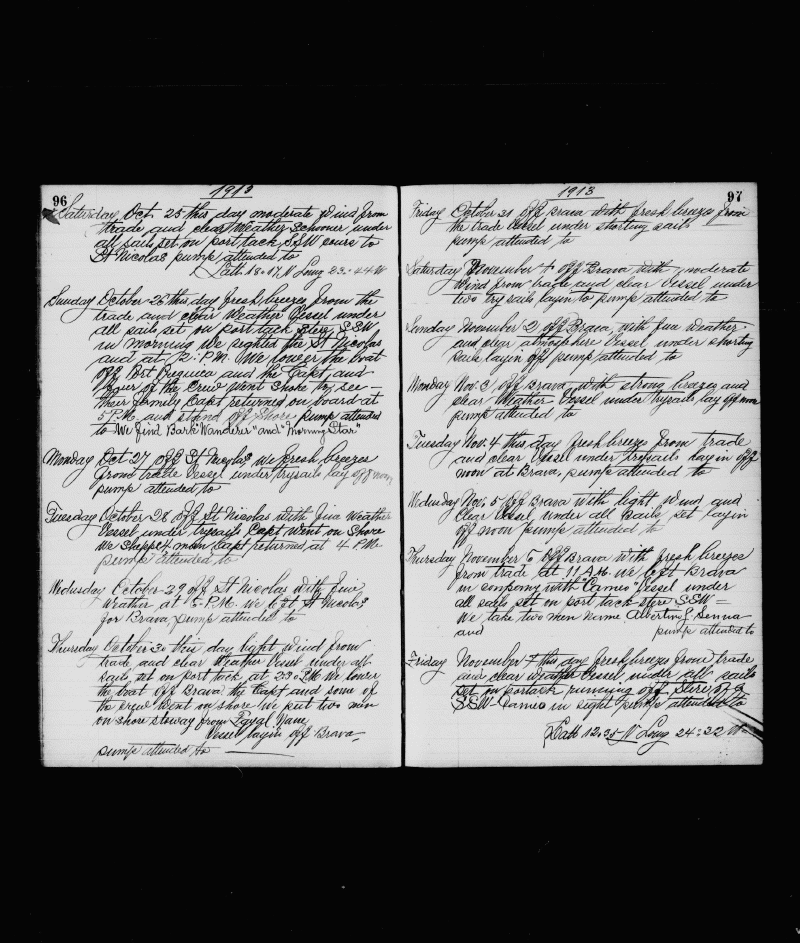 96
1913
Saturday Oct. 25 this day moderate wind from
trade and clear weather schooner under
all sails set on port tack SSW course to
St Nicolas pump attended to
Lath 18.07 N Long 23.44 W
Sunday October 26 this day fresh breeze from the
trade and clear Weather Vessel under
all sails set on port tack stere SSW
in morning we sighted the St Nicolas
and at 12 P.M. We lower the boat
off Port and the Capt. and
four of the Crew Went Shore to see
their family Capt returned on board at
5 P.M. and stand off Shore pump attended
to We find Bark "Wanderer" and "Morning Star"
Monday Oct 27 off St Nicolas we fresh breezes
from trade Vessel under trysails lay off &
pump attended to
Tuesday October 28 off St Nicolas with fine weather
Vessel under trysails Capt Went on Shore
We Shippet man Capt returned at 4 P.M.
pump attended to
Wednesday October 29 off St Nicolas with fine
Weather at 5 P.M. we left St Nicolas
for Brava pump attended to
Thursday October 30 this day light wind from
trade and clear Weather Vessel under all
sails set on port tack at 2.30 P.M. We lower
the boat off Brava the Capt and some of
the crew Went on shore we put two men
on shore stoway from Fayal Name
Vessel layin off Brava
pump attended to
97
1913
Friday October 31 off Brava with fresh breezes from
the trade Vessel under shorting sails
pump attended to
Saturday November 1 off Brava with moderate
Wind from trade and clear Vessel under
two try sails layin to pump attended to
Sunday November 2 off Brava, with fine Weather
and clear atmosphere Vessel under shorting
sails layin off pump attended to
Monday Nov. 3 off Brava, with strong breezes and
clear Weather Vessel under trysails lay off
pump attended to
Tuesday Nov. 4 this day fresh breeze from trade
and clear Vessel under trysails layin off
at Brava, pump attended to
Wednesday Nov. 5 off Brava with light wind and
Clear Vessel under all Sails set layin
off pump attended to
Thursday November 6 off Brava with fresh breezes
from trade at 11 A.M. we left Brava
in company with "Cameo" Vessel under
all sails set on port tack stere SSW
We take two men Name Senna
and pump attended to
Friday November 7 this day fresh breezes from trade
and clear weather Vessel under all sails
set on portack running off Stere
SSW Cameo in sight pump attended to
Lath 12.35 N Long 24.22 W